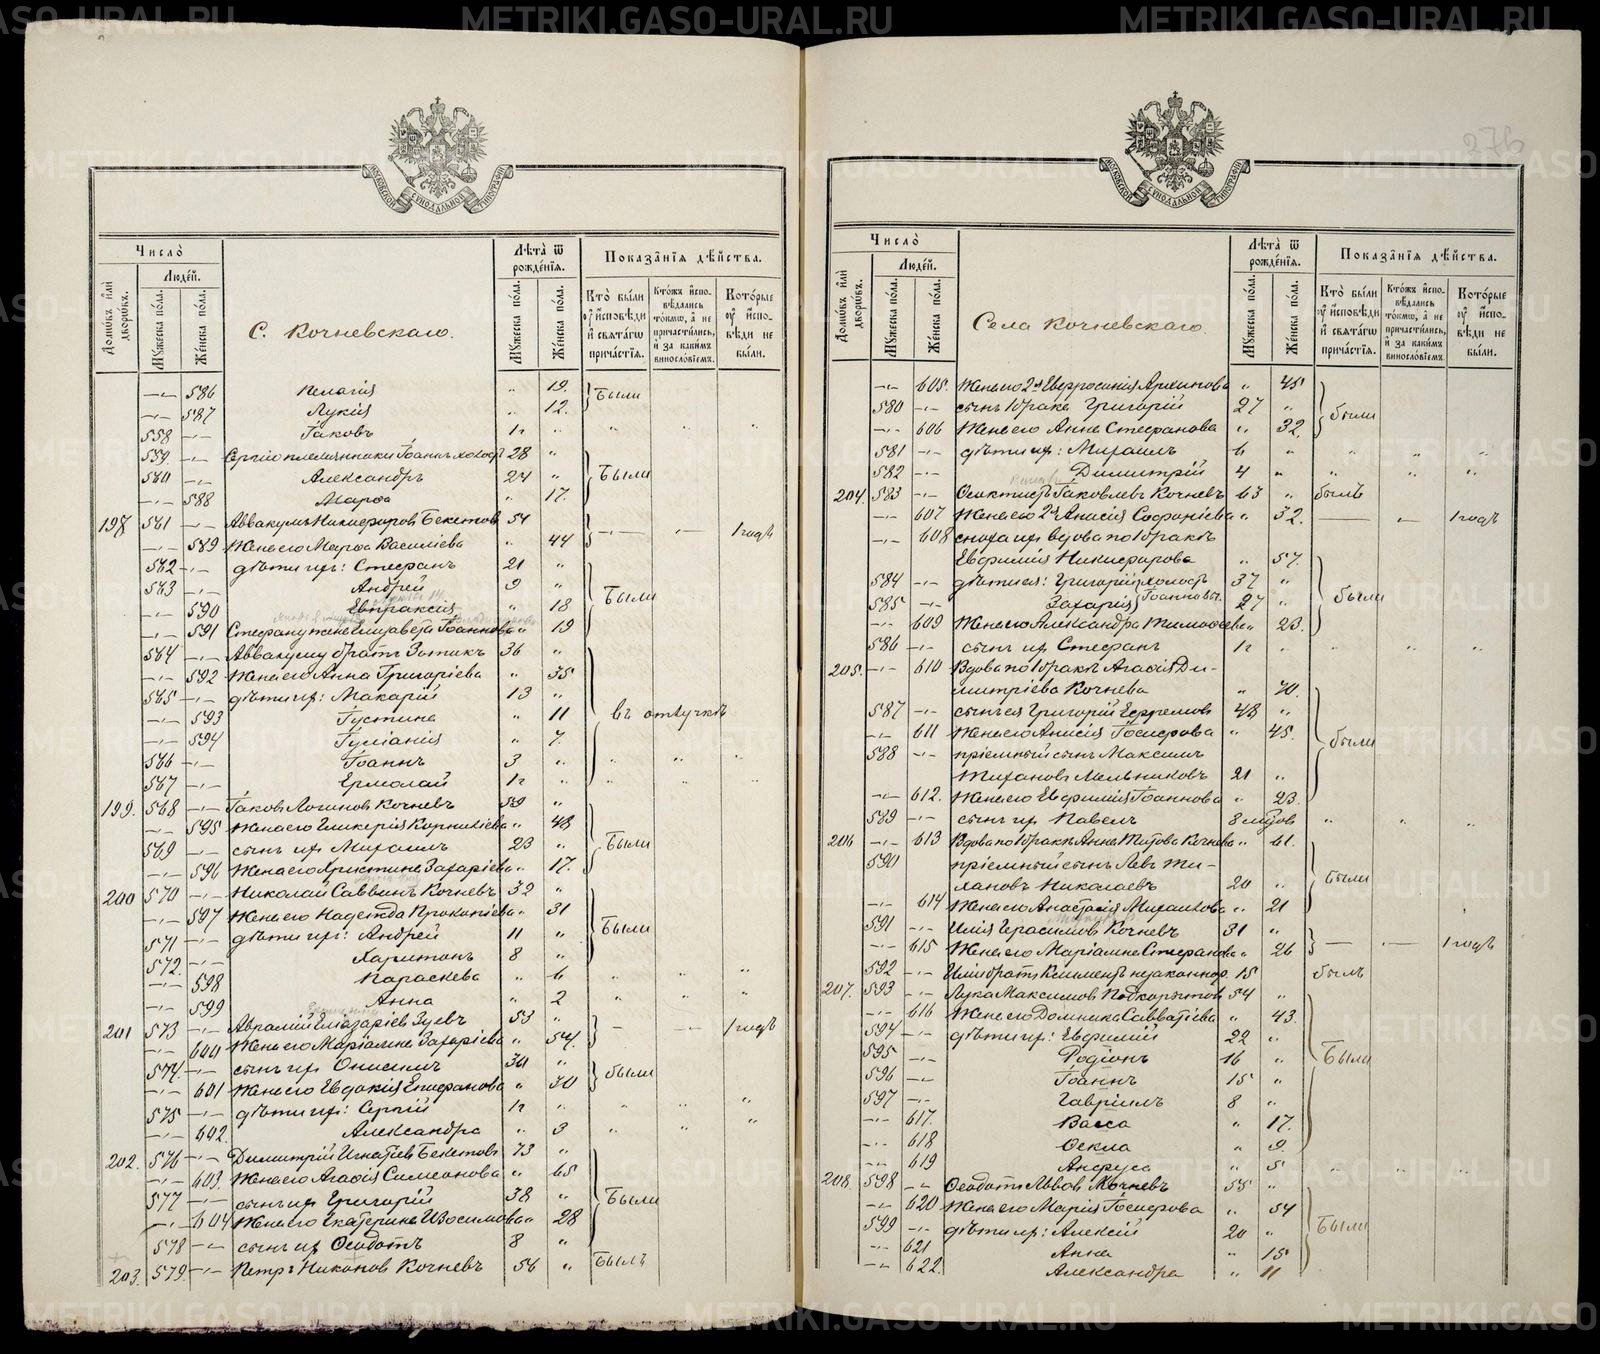 METRIKI.GASO-URAL.RU
МОСКОВСКОЙ СѴНОДАЛЬНОЙ ТИПОГРАФІИ
Число̀
Людéй.
Лѣта̀ ѿ рождéнїѧ.
Показáнїѧ дѣ́йства.
Домѡ́въ и҆лѝ дворѡ́въ.
Мꙋ́жеска по́ла.
Же́нска по́ла.
Кто̀ бы́ли ᲂу҆ и҆́споведи и҆ свѧта́гѡ прича́стїѧ.
Кто́жъ и҆спо-вѣ́дались то́кмѡ, а҆ не причасти́лись, и҆ за каки́мъ винословїемъ.
Кото́рые ᲂу҆ и҆́спо-вѣди не бы́ли.
С. Кочневскаго.
—„— 586 Пелагія „ 19. Были
—„— 587 Лукія „ 12.
558 —„— Іаковъ 1 г „
559. —„— Сергію племянники Іоаннъ холост 28 „
560 —„— Александръ 24 „ Были
—„— 588 Марѳа „ 17.
198 561 —„— Аввакумъ Никифоровъ Бекетовъ 54 1 годъ
—„— 589 Жена его Марѳа Василіева „ 44
562 —„— дѣти их: Стефанъ 21 „
563 —„— Андрей 9 „ Были
—„— 590 Евпраксія „ 18
—„— 591 Стефану жена Елизавета Іоаннова „ 19
564 —„— Аввакуму братъ Зотикъ 36 „
—„— 592 Жена его Анна Григоріева „ 35
565 —„— дѣти их: Макарій 13 „
—„— 593 Іустина „ 11 въ отлучкѣ
—„— 594 Іуліанія „ 7.
566 —„— Іоаннъ 3 „
567 —„— Ермолай 1 г „
199. 568 —„— Іаковъ Логиновъ Кочневъ 59 „
—„— 595 Жена его Гликерія Корниліева „ 48
569 —„— сынъ их Михаилъ 23 „ Были
—„— 596 Жена его Христина Захаріева „ 17.
200 570 —„— Николай Саввинъ Кочневъ 32 „
—„— 597 Жена его Надежда Прокопіева „ 31
571 —„— дѣти их: Андрей 11 „ Были
572. —„— Харитонъ 8 „
—„— 598 Параскева „ 6
—„— 599 Анна „ 2
201 573 —„— Авраамій Елеазаріев Зуевъ 53 „ 1 годъ
—„— 600 Жена его Маріамна Захаріева „ 54.
574. —„— сынъ их Онисимъ 30 „
—„— 601 Жена его Евдокія Епифанова „ 30 были
575 —„— дѣти их: Сергій 1 г „
—„— 602. Александра „ 3
202. 576 —„— Димитрій Игнатіев Бекетовъ 73 „
—„— 603. Жена его Агафія Симеонова „ 65
577 —„— сынъ их Григорій 38 „ Были
—„— 604 Жена его Екатерина Изосимова „ 28
578 —„— сынъ их Ѳеодотъ 8 „
203. 579. —„— Петръ Никоновъ Кочневъ 56 „ Былъ
Число̀
Людéй.
Лѣта̀ ѿ рождéнїѧ.
Показáнїѧ дѣ́йства.
Домѡ́въ и҆лѝ дворѡ́въ.
Мꙋ́жеска по́ла.
Же́нска по́ла.
Кто̀ бы́ли ᲂу҆ и҆́споведи и҆ свѧта́гѡ прича́стїѧ.
Кто́жъ и҆спо-вѣ́дались то́кмѡ, а҆ не причасти́лись, и҆ за каки́мъ винословїемъ.
Кото́рые ᲂу҆ и҆́спо-вѣди не бы́ли.
376
Села Кочневскаго.
—„— 605. Жена его 2я Евфросинія Архипова „ 45
580 —„— сынъ 1 брака Григорій 27 „ были
—„— 606 Жена его Анна Стефанова „ 32.
581 —„— дѣти их: Михаилъ 6 „
582 —„— Димитрій 4 „
204. 583 —„— Ѳеоктистъ Іаковлевъ Кочневъ 63 „ былъ
—„— 607 Жена его 2я Анисія Софоніева „ 32. 1 годъ
—„— 608 сноха их вдова по 1 бракѣ
Евфимія Никифорова „ 57.
584 —„— дѣти ея: Григорій холостъ 37 „
585 —„— Захарія Іоанновы. 27 „ были
—„— 609 Жена его Александра Тимофеева „ 23.
586 —„— сынъ их Стефанъ 1 г
205. —„— 610 Вдова по 1 бракѣ Агафія Ди-
митріева Кочнева „ 70.
587 —„— сынъ ея Григорій Ефремовъ 48 „
—„— 611 Жена его Анисія Іосифова „ 45.
588 —„— пріемный сынъ Максимъ были
Тихановъ Мельниковъ 21 „
—„— 612. Жена его Евфимія Іоаннова „ 23.
589 —„— сынъ их Павелъ 8 мѣсцов „
206 —„— 613 Вдова по 1 бракѣ Анна Титова Кочнева „ 61.
590 пріемный сынъ Левъ Ти-
хановъ Николаевъ 20 „ были
—„— 614 Жена его Анастасія Михаилова „ 21
591 —„— Илія Герасимовъ Кочневъ 31 „
—„— 615 Жена его Маріамна Стефанова „ 26 1 годъ
592 —„— Иліи братъ Климентъ незаконнор. 15 былъ
207. 593 —„— Лука Максимовъ Подкорытовъ 54 „
—„— 616 Жена его Домника Савватіева „ 43.
594 —„— дѣти их: Евфимій 22 „
595 —„— Родіонъ 16 „ Были
596 —„— Іоаннъ 15 „
597 —„— Гавріилъ 8 „
—„— 617. Васса „ 17.
—„— 618 Ѳекла „ 9.
—„— 619 Анфуса „ 5
208. 598 —„— Ѳеодотъ Львовъ Кочневъ 55 „
—„— 620 Жена его Марія Іосифова „ 54
599 —„— дѣти их: Алексій 20 „ Были
—„— 621 Анна „ 15
—„— 622. Александра „ 11